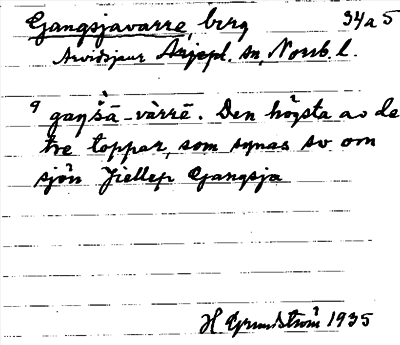 Gangsjavarre, berg 34a5
Arvidsjaur Arjepl. sn, Norrb. l.
q gaŋšā-vàrrē. Den högsta av de
tre toppar, som synas sv om
sjön Jiellep Gangsja
H Grundström 1935